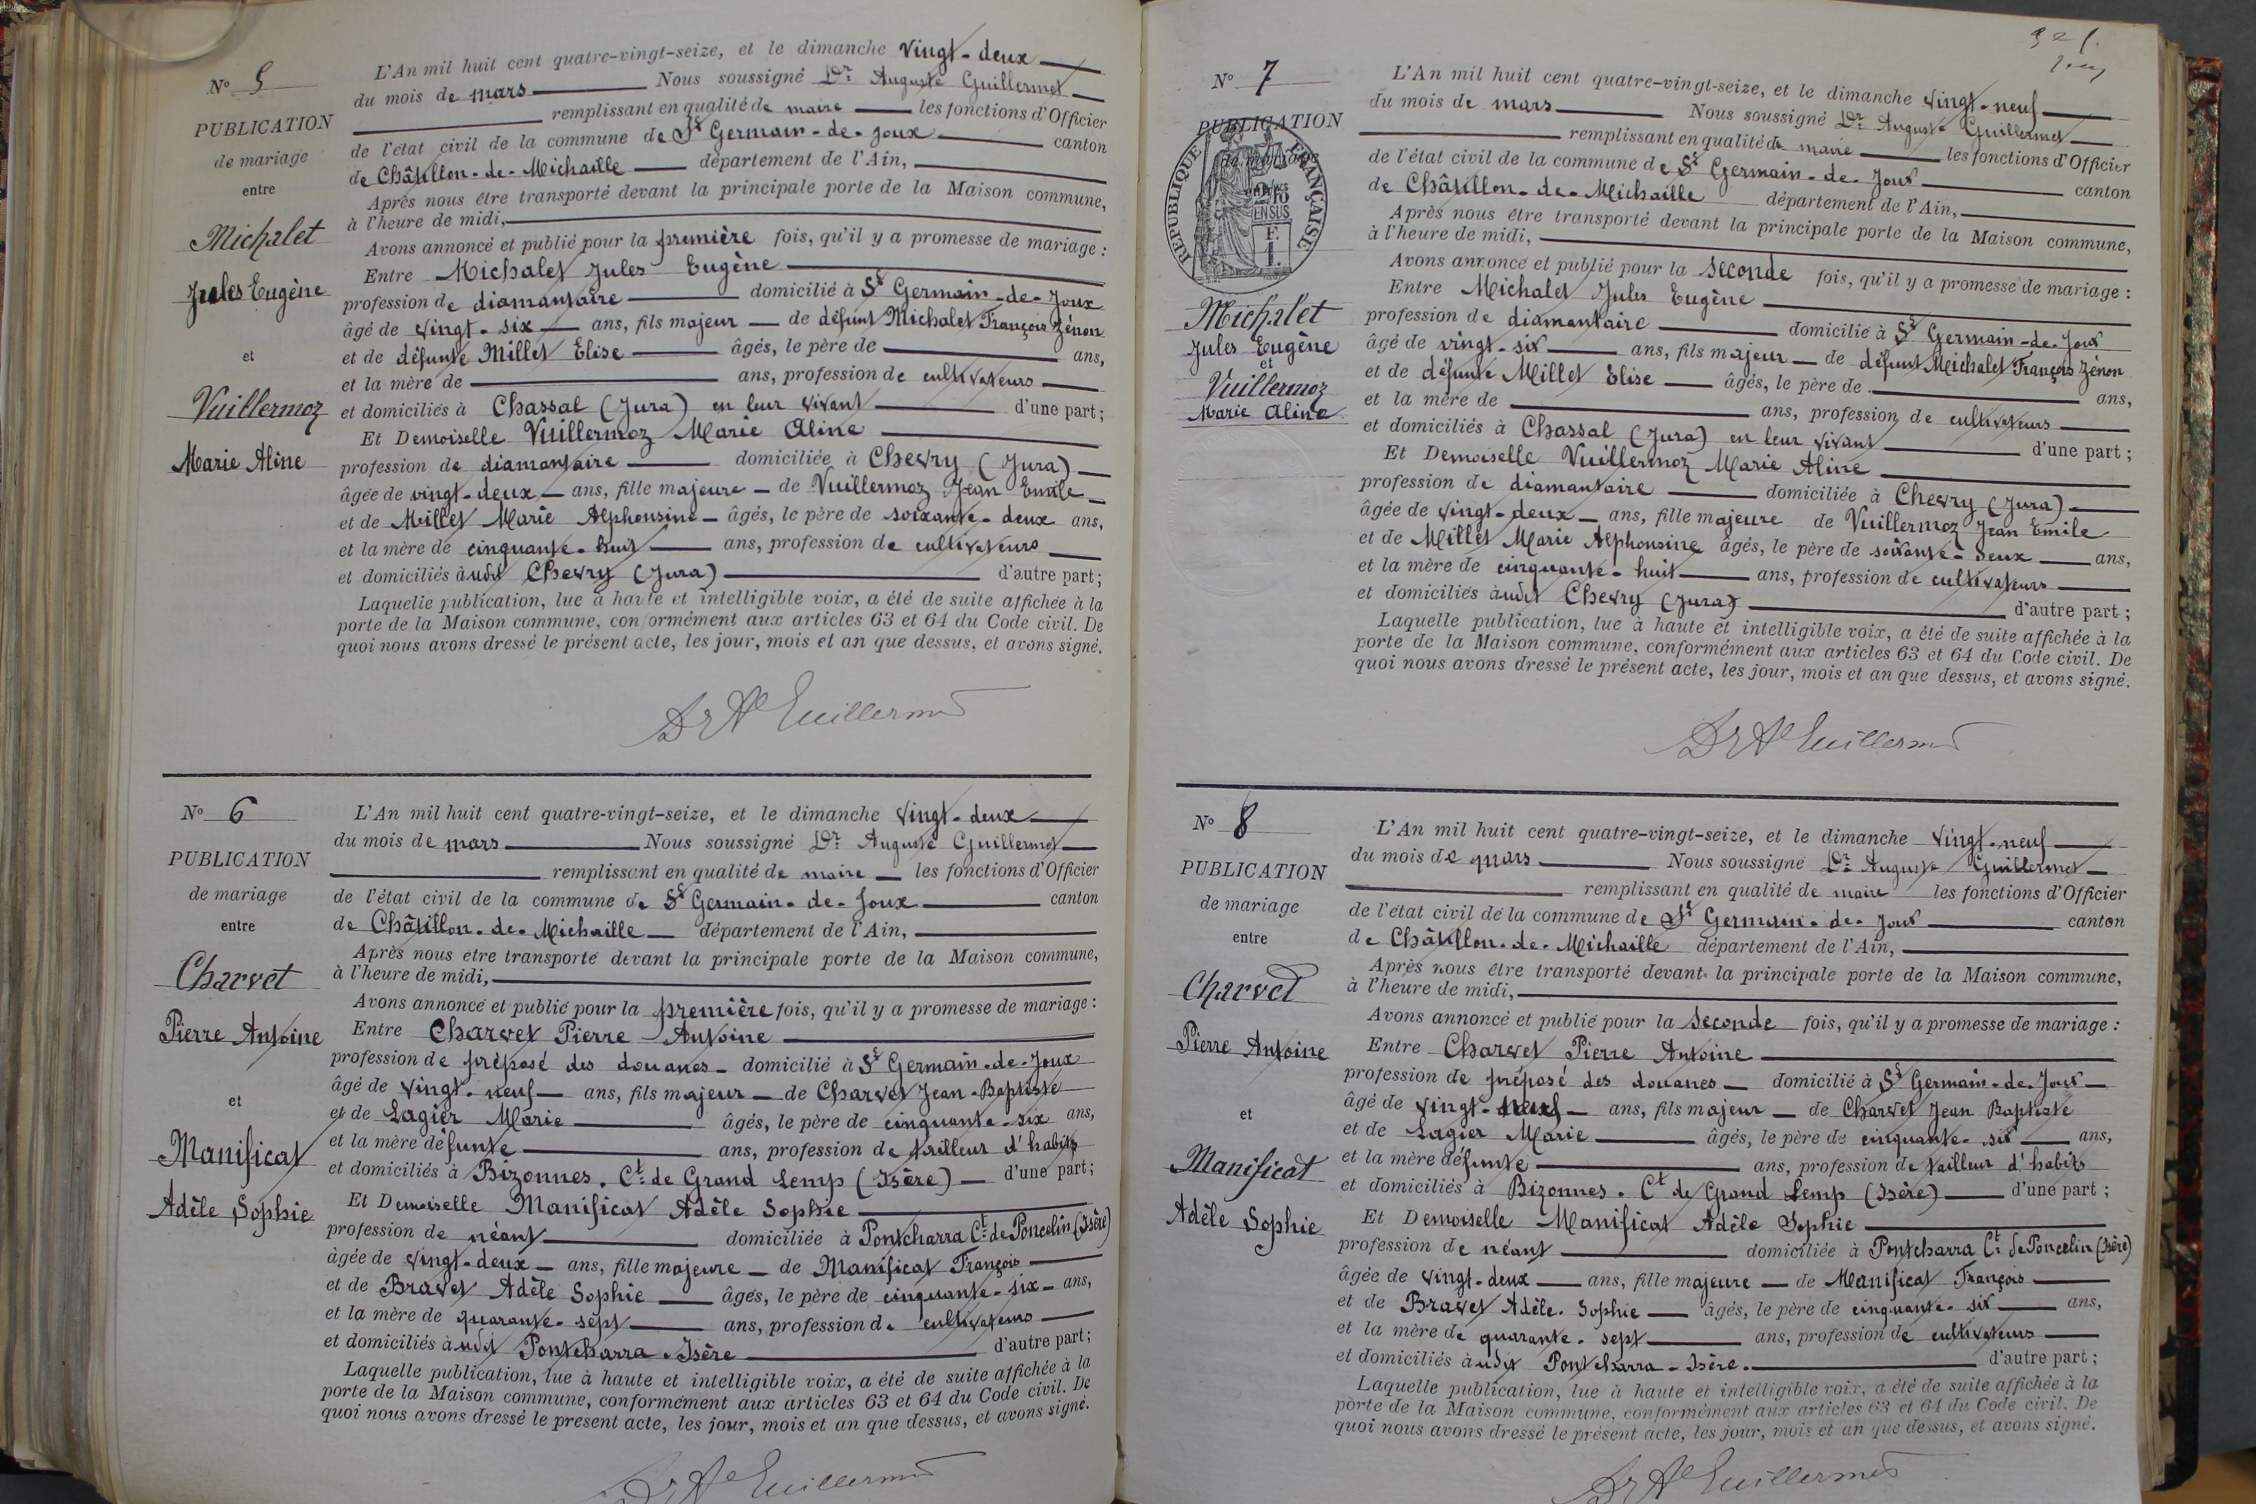 N° 5
PUBLICATION
de mariage
entre
Michalet
Jules Eugène
et
Vuillermoz
Marie Aline
L'An mil huit cent quatre-vingt-seize, et le dimanche vingt-deux
du mois de mars Nous soussigné Dr Auguste Guillermet
remplissant en qualité de maire les fonctions d'Officier
de l'état civil de la commune de St Germain-de-Joux canton
de Châtillon-de-Michaille département de l'Ain,
Après nous être transporté devant la principale porte de la Maison commune,
à l'heure de midi,
Avons annoncé et publié pour la première fois, qu'il y a promesse de mariage :
Entre Michalet Jules Eugène
profession de diamantaire domicilié à St Germain-de-Joux
âgé de vingt-six ans, fils majeur de défunt Michalet François Zénon
et de défunte Millet Elise âgés, le père de ans,
et la mère de ans, profession de cultivateurs
et domiciliés à Chassal (Jura) en leur vivant d'une part;
Et Demoiselle Vuillermoz Marie Aline
profession de diamantaire domiciliée à Chevry (Jura)
âgée de vingt-deux ans, fille majeure de Vuillermoz Jean Emile
et de Millet Marie Alphonsine âgés, le père de soixante-deux ans,
et la mère de cinquante-huit ans, profession de cultivateurs
et domiciliés àudit Chevry (Jura) d'autre part;
Laquelle publication, lue à haute et intelligible voix, a été de suite affichée à la
porte de la Maison commune, conformément aux articles 63 et 64 du Code civil. De
quoi nous avons dressé le présent acte, les jour, mois et an que dessus, et avons signé.
Dr Ate Guillermet
N° 6
PUBLICATION
de mariage
entre
Charvet
Pierre Antoine
et
Manificat
Adèle Sophie
L'An mil huit cent quatre-vingt-seize, et le dimanche vingt-deux
du mois de mars Nous soussigné Dr Auguste Guillermet
remplissant en qualité de maire les fonctions d'Officier
de l'état civil de la commune de St Germain-de-Joux canton
de Châtillon-de-Michaille département de l'Ain,
Après nous être transporté devant la principale porte de la Maison commune,
à l'heure de midi,
Avons annoncé et publié pour la première fois, qu'il y a promesse de mariage :
Entre Charvet Pierre Antoine
profession de préposé des douanes domicilié à St Germain-de-Joux
âgé de vingt-neuf ans, fils majeur de Charvet Jean-Baptiste
et de Lagier Marie âgés, le père de cinquante-six ans,
et la mère défunte ans, profession de tailleur d'habits
et domiciliés à Bizonnes. Ct de Grand Lemp (Isère) d'une part;
Et Demoiselle Manificat Adèle Sophie
profession de néant domiciliée à Pontcharra Ct de Poncelin (Isère)
âgée de vingt-deux ans, fille majeure de Manificat François
et de Bravet Adèle Sophie âgés, le père de cinquante-six ans,
et la mère de quarante-sept ans, profession de cultivateurs
et domiciliés àudit Pontcharra-Isère d'autre part;
Laquelle publication, lue à haute et intelligible voix, a été de suite affichée à la
porte de la Maison commune, conformément aux articles 63 et 64 du Code civil. De
quoi nous avons dressé le présent acte, les jour, mois et an que dessus, et avons signé.
Dr Ate Guillermet
N° 7
PUBLICATION
de mariage
RÉPUBLIQUE FRANÇAISE
EN SUS
F.
1.
Michalet
Jules Eugène
et
Vuillermoz
Marie Aline
L'An mil huit cent quatre-vingt-seize, et le dimanche vingt-neuf
du mois de mars Nous soussigné Dr Auguste Guillermet
remplissant en qualité de maire les fonctions d'Officier
de l'état civil de la commune de St Germain-de-Joux canton
de Châtillon-de-Michaille département de l'Ain,
Après nous être transporté devant la principale porte de la Maison commune,
à l'heure de midi,
Avons annoncé et publié pour la seconde fois, qu'il y a promesse de mariage :
Entre Michalet Jules Eugène
profession de diamantaire domicilié à St Germain-de-Joux
âgé de vingt-six ans, fils majeur de défunt Michalet François Zénon
et de défunte Millet Elise âgés, le père de ans,
et la mère de ans, profession de cultivateurs
et domiciliés à Chassal (Jura) en leur vivant d'une part;
Et Demoiselle Vuillermoz Marie Aline
profession de diamantaire domiciliée à Chevry (Jura)
âgée de vingt-deux ans, fille majeure de Vuillermoz Jean Emile
et de Millet Marie Alphonsine âgés, le père de soixante-deux ans,
et la mère de cinquante-huit ans, profession de cultivateurs
et domiciliés àudit Chevry (Jura) d'autre part;
Laquelle publication, lue à haute et intelligible voix, a été de suite affichée à la
porte de la Maison commune, conformément aux articles 63 et 64 du Code civil. De
quoi nous avons dressé le présent acte, les jour, mois et an que dessus, et avons signé.
Dr Ate Guillermet
N° 8
PUBLICATION
de mariage
entre
Charvet
Pierre Antoine
et
Manificat
Adèle Sophie
L'An mil huit cent quatre-vingt-seize, et le dimanche vingt-neuf
du mois de mars Nous soussigné Dr Auguste Guillermet
remplissant en qualité de maire les fonctions d'Officier
de l'état civil de la commune de St Germain-de-Joux canton
de Châtillon-de-Michaille département de l'Ain,
Après nous être transporté devant la principale porte de la Maison commune,
à l'heure de midi,
Avons annoncé et publié pour la seconde fois, qu'il y a promesse de mariage :
Entre Charvet Pierre Antoine
profession de préposé des douanes domicilié à St Germain-de-Joux
âgé de vingt-neuf ans, fils majeur de Charvet Jean Baptiste
et de Lagier Marie âgés, le père de cinquante-six ans,
et la mère défunte ans, profession de tailleur d'habits
et domiciliés à Bizonnes. Ct de Grand Lemp (Isère) d'une part;
Et Demoiselle Manificat Adèle Sophie
profession de néant domiciliée à Pontcharra Ct de Poncelin (Isère)
âgée de vingt-deux ans, fille majeure de Manificat François
et de Bravet Adèle-Sophie âgés, le père de cinquante-six ans,
et la mère de quarante-sept ans, profession de cultivateurs
et domiciliés àudit Pontcharra-Isère. d'autre part;
Laquelle publication, lue à haute et intelligible voix, a été de suite affichée à la
porte de la Maison commune, conformément aux articles 63 et 64 du Code civil. De
quoi nous avons dressé le présent acte, les jour, mois et an que dessus, et avons signé.
Dr Ate Guillermet